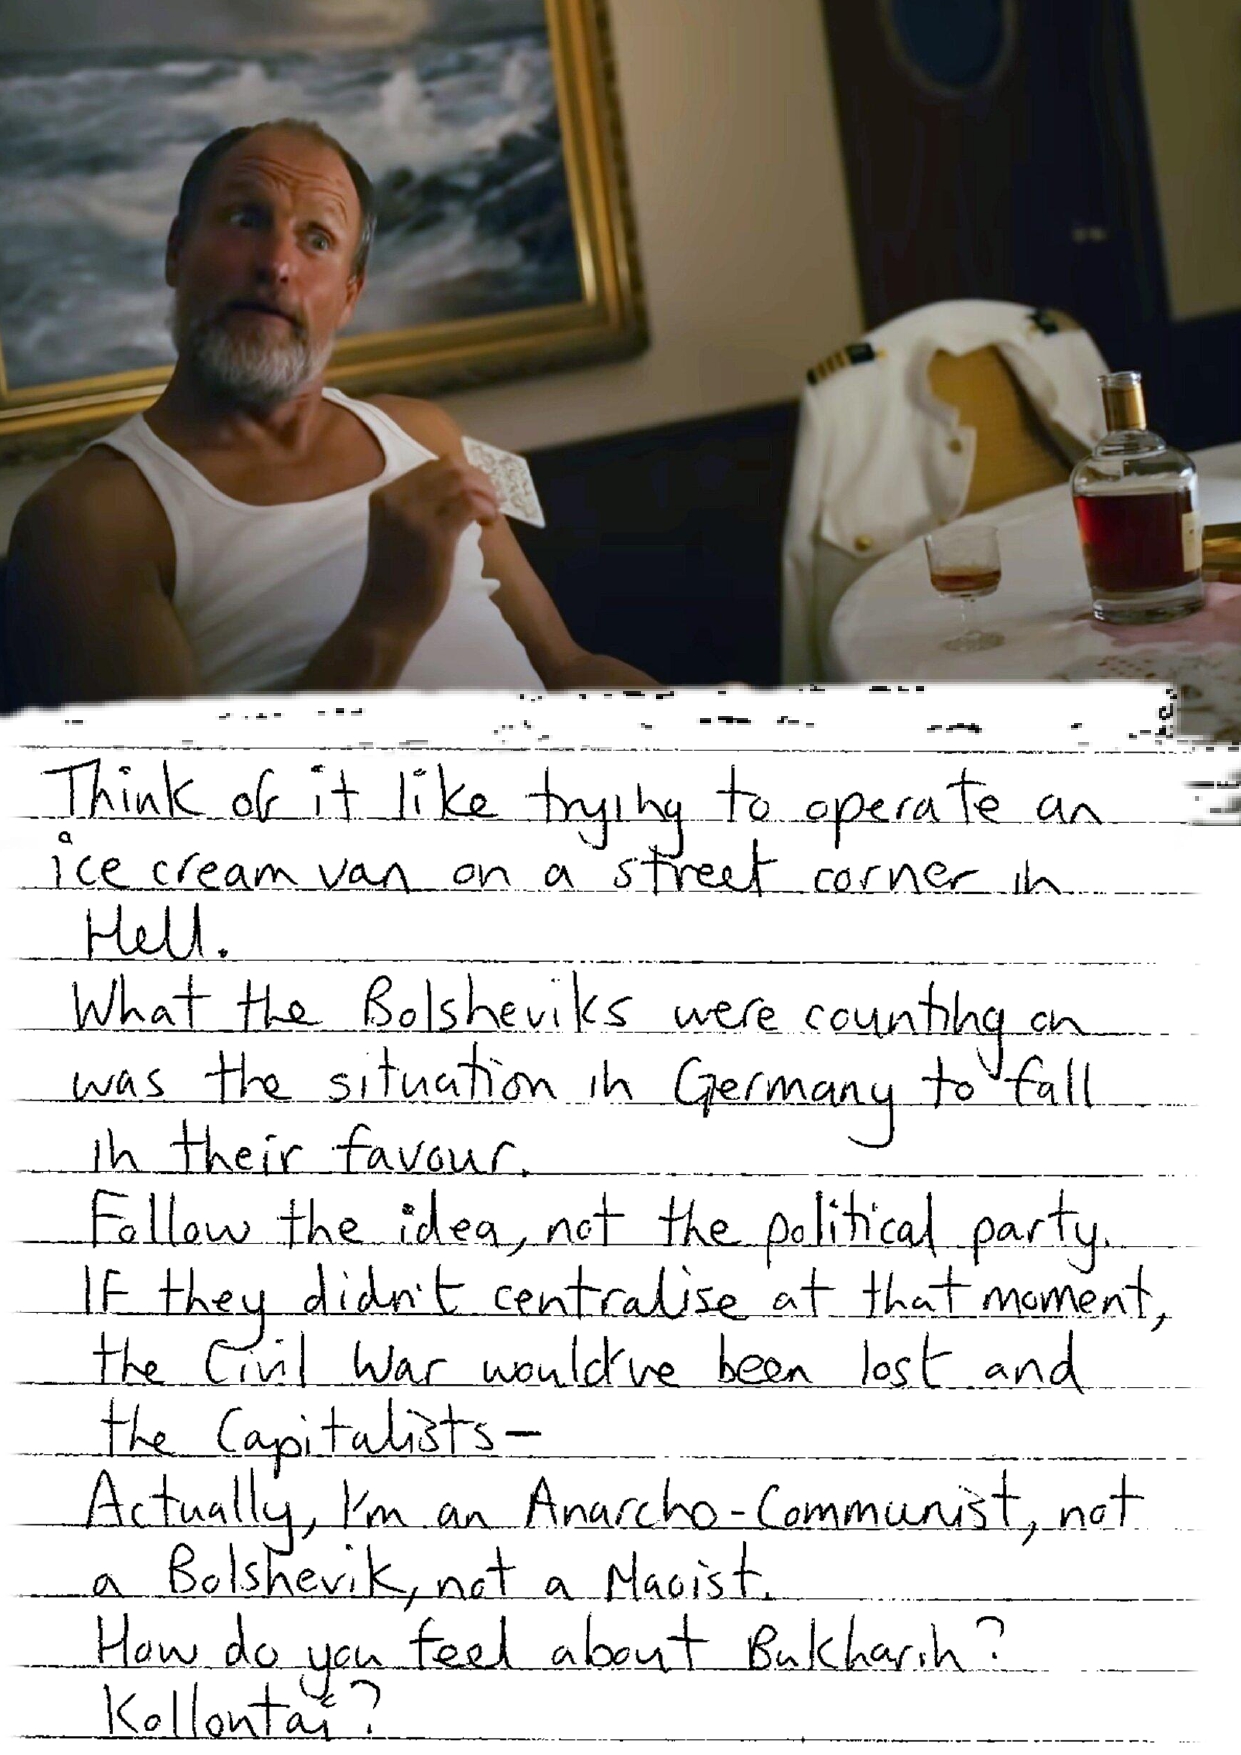 Think of it like trying to operate an
ice cream van on a street corner in
Hell.
What the Bolsheviks were counting on
was the situation in Germany to fall
in their favour.
Follow the idea, not the political party.
If they didn't centralise at that moment,
the Civil War would've been lost and
the Capitalists—
Actually, I'm an Anarcho-Communist, not
a Bolshevik, not a Maoist.
How do you feel about Bukharin?
Kollontai?